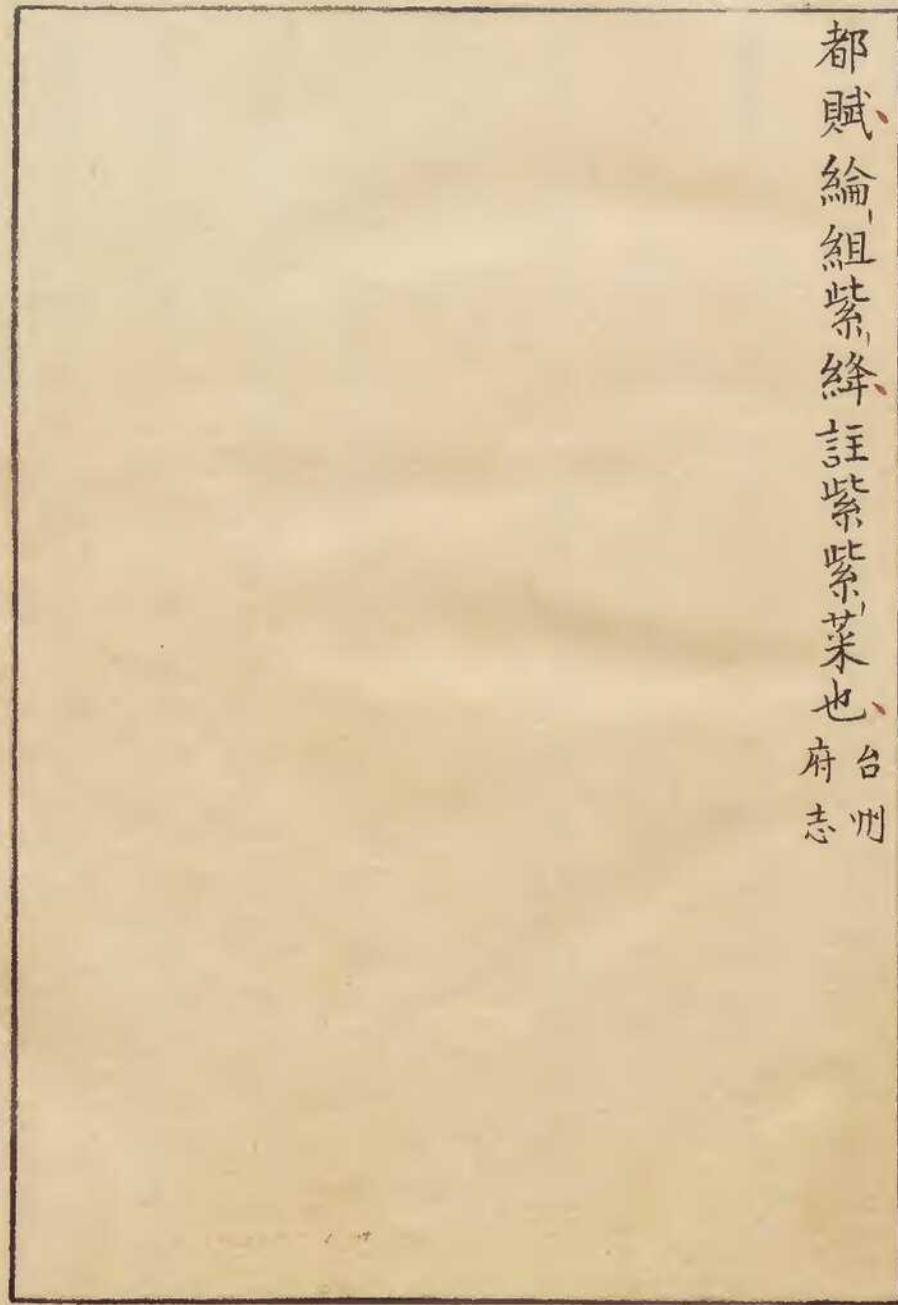 都賦綸組紫絳註紫紫菜也台州府志